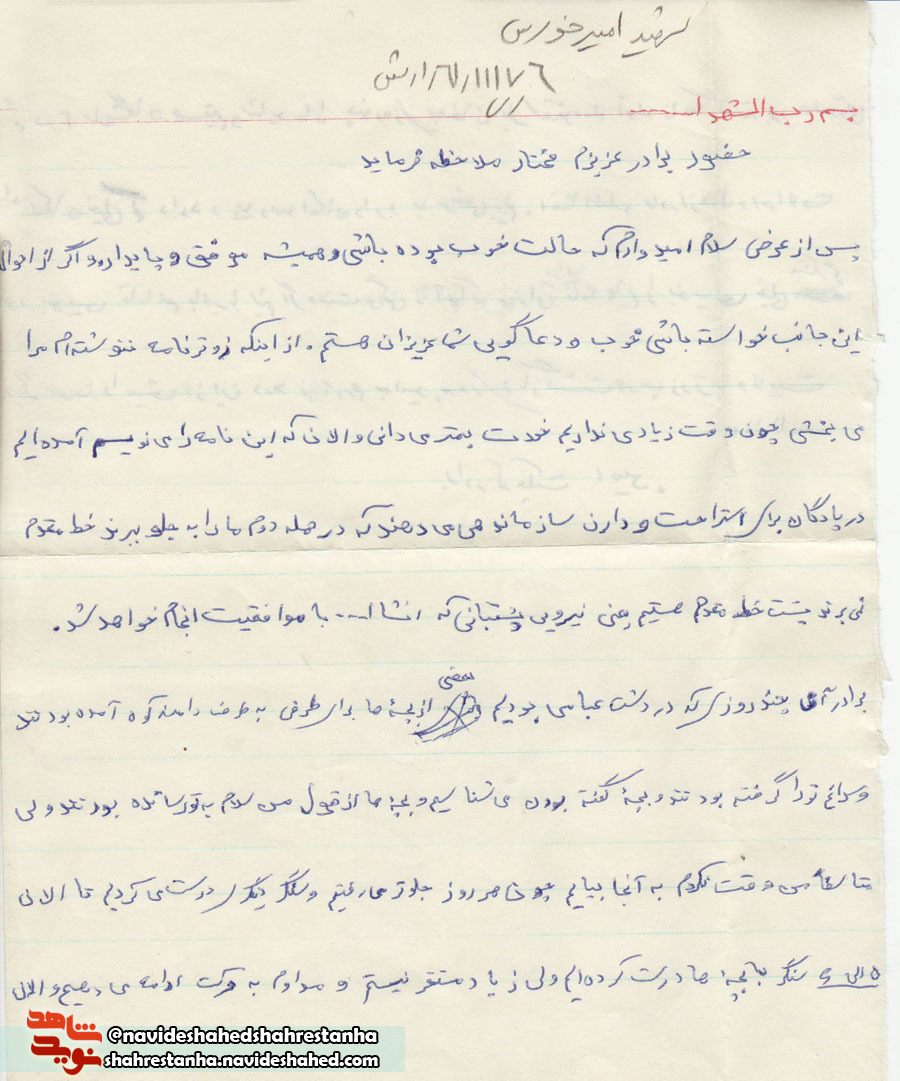 شهید امیر خورس
بسم رب الشهدا
حضور برادر عزیزم مختار ملاحظه فرماید
پس از عرض سلام امیدوارم که حالت خوب بوده باشی و همیشه موفق و پایدار و اگر از احوال
این جانب خواسته باشی خوب و دعاگویی شما عزیزان هستم . از اینکه زوتر نامه ننوشته‌ام مرا
می بخشی چون وقت زیادی نداریم خودت بهتر می دانی و الان که این نامه را می نویسم آمده ایم
در پادگان برای استراحت و دارن سازماندهی می دهند که در حمله دوم ما را به جلو ببرند خط مقدم
نمی برند پشت خط مقدم هستیم یعنی نیرویی پشتبانی که انشا ا... با موافقیت انجام خواهد شد .
برادر چند روزی که در دشت عباس بودیم بعضی از بچۀ ها برای طرف دامنه کوه آمده بودند
و سراغ تو را گرفته بودند و بچۀ گفته بودن می شناسیم و بچۀ ها از قول من سلام به تو رسانده بودند ولی
متاسفانه من وقت نکردم به آنجا بیایم چون هر روز جلوتر می رفتیم و سنگر دیگری درست می کردیم تا الان
۵ الی ۶ سنگر با بچۀ ها درست کرده ایم ولی زیاد مستقر نیستم و مداوم به حرکت ادامه می دهیم و الان
شاهد
نوید
@navideshahedshahrestanha
shahrestanha.navideshahed.com